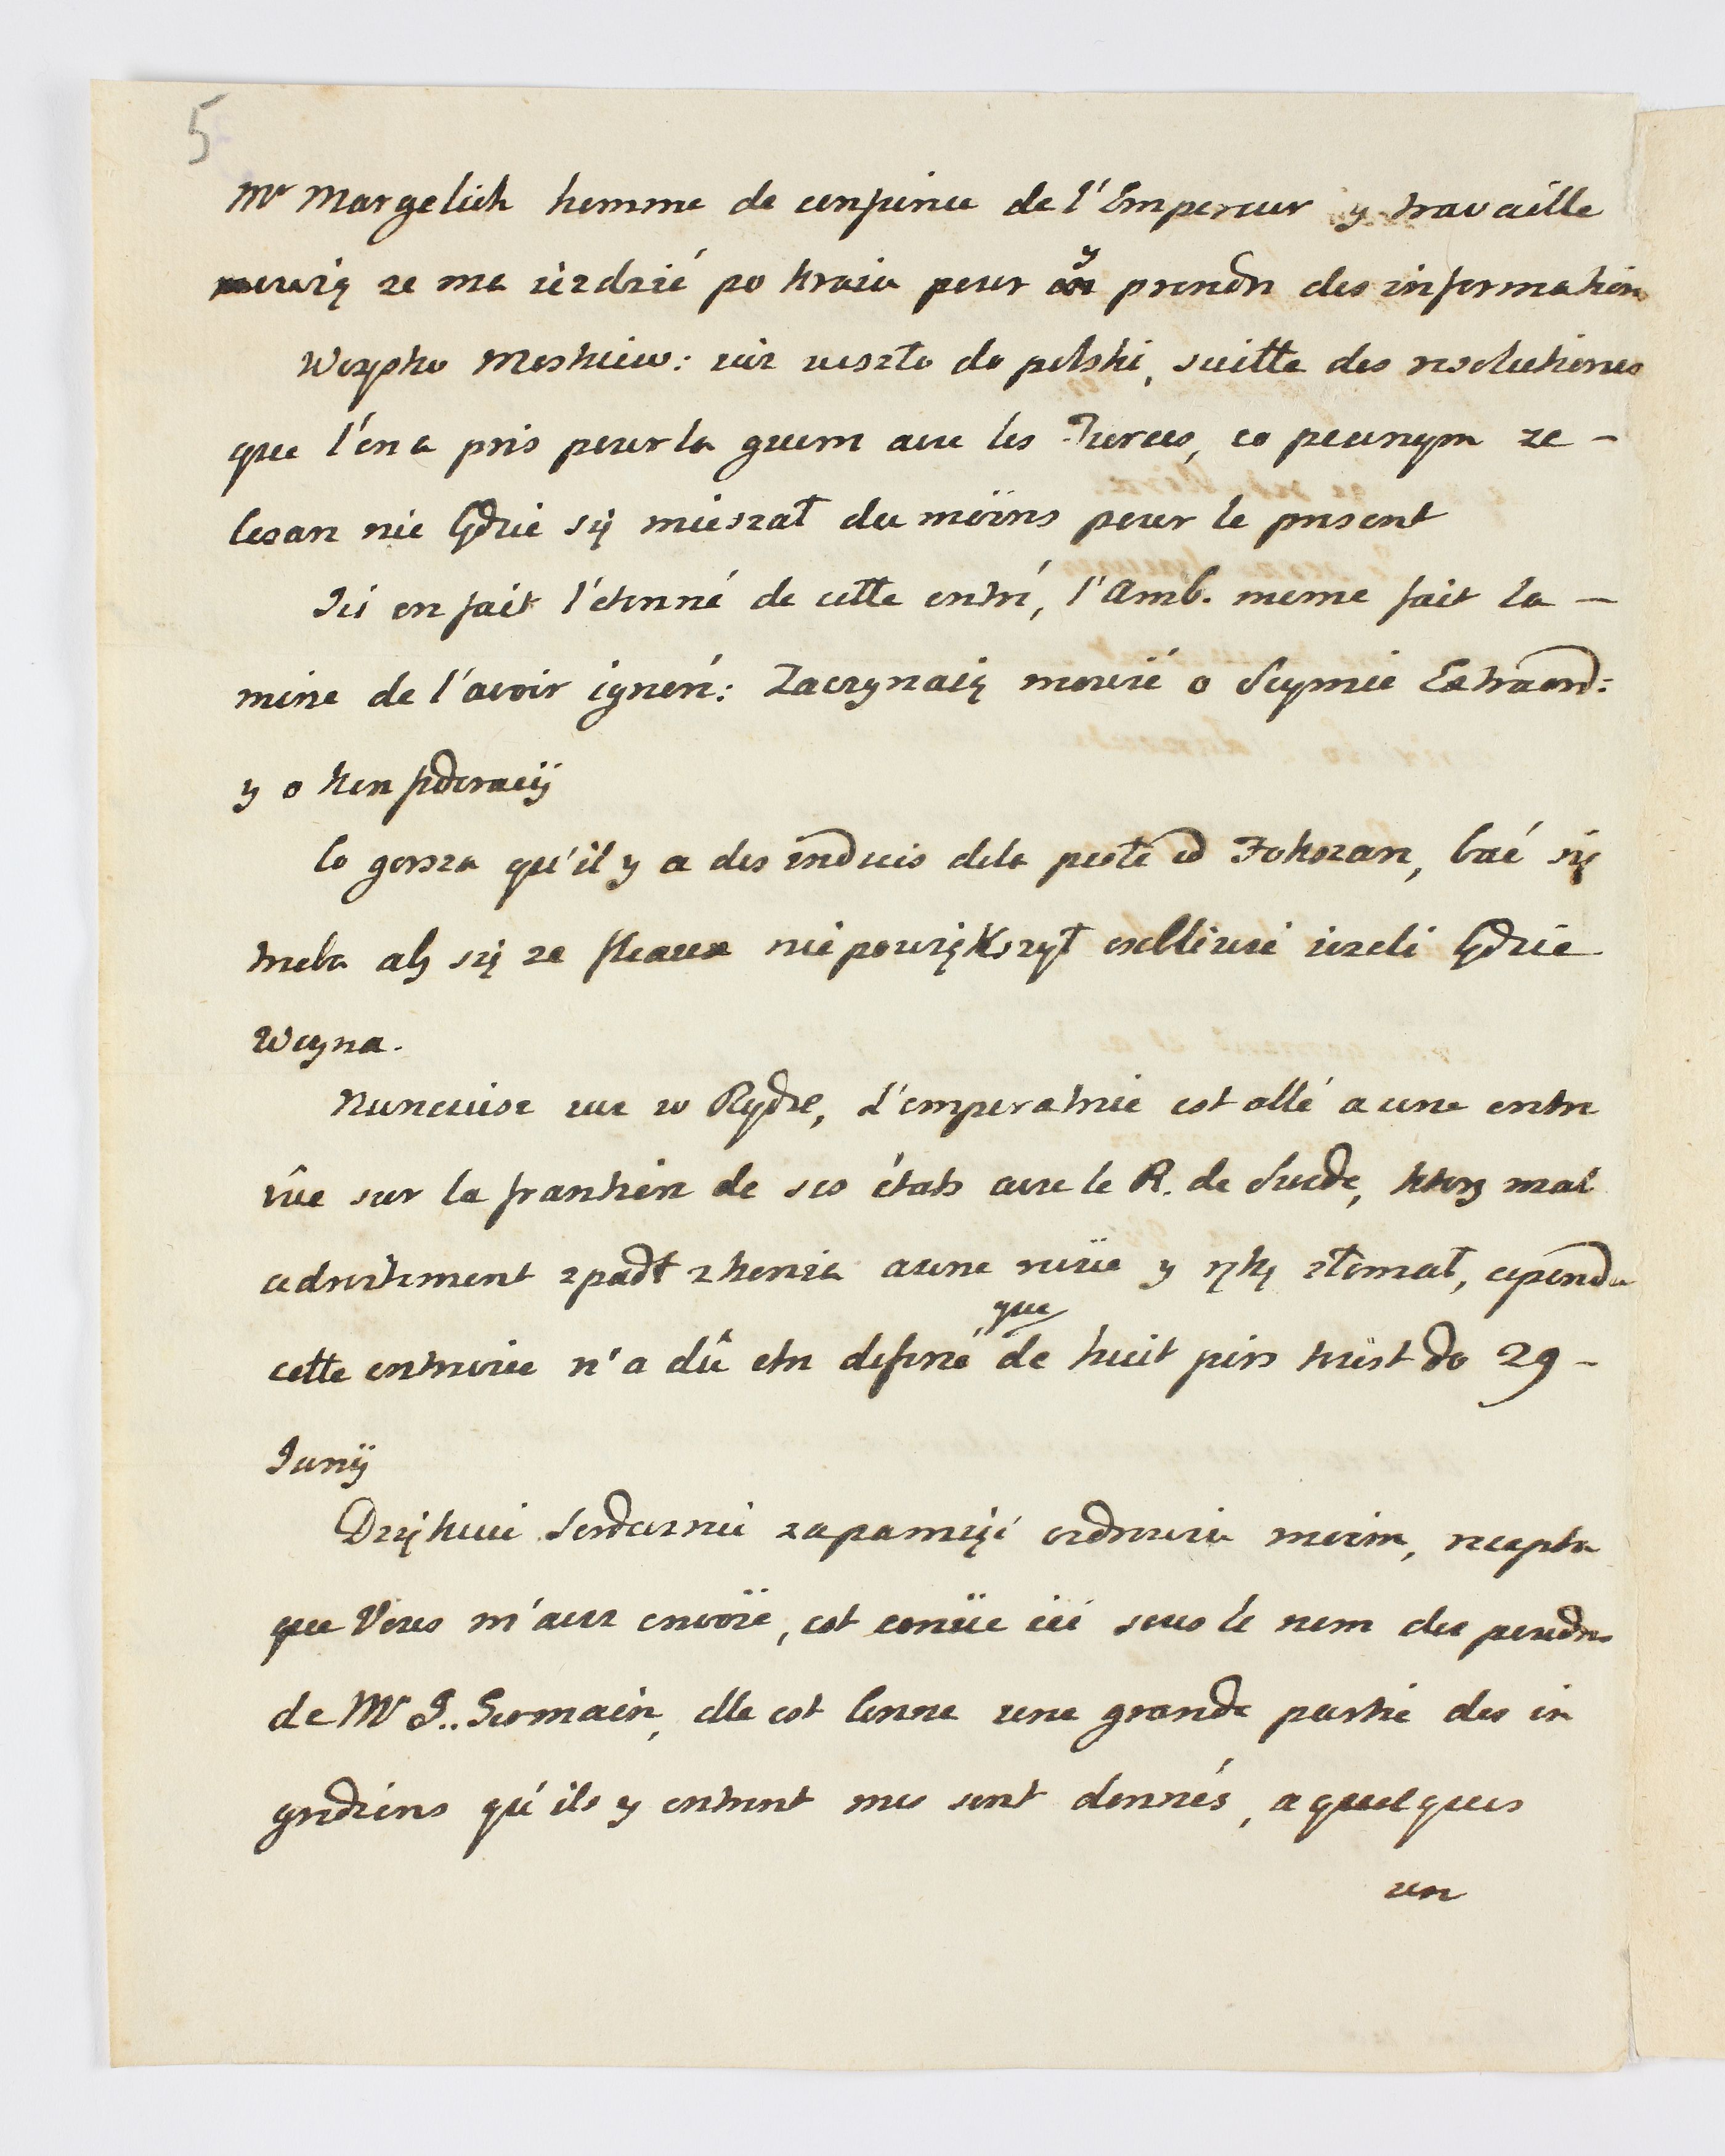 5
Mr Margelich homme de confience de l'Empereur y travaille
mowią ze ma iezdzić po kraiu pour y prendre des information
Woysko Moskiew: iuz weszło do polski, suitte des resolutiones
que l'on a pris pour la guerre avec les Turcs, co pewnym ze -
Cesarz nie będzie się mieszał du moins pour le present
Ici on fait l'etonné de cette entré, l'Amb. meme fait la -
mine de l'avoir ignoré: Zaczynaią mowić o Seymie Extraord:
y o Konfederacij
Co gorsza qu'il y a des indices de la peste od Fokszan, bać się
trzeba aby się ze fleaux niepowiększył osobliwie iezeli będzie
Woyna.
Nuncuisz iuz w Rydze, L'imperatrice est allé a une entre
vûe sur la frontiere de ses états avec le R. de Suede, ktory mal
adroitement zpadł z konia a une revüe y rękę złomał, cependa
cette entrevue n'a dû etre differé que de huit jours tojest do 29 -
Junij
Dziękuie Serdecznie zapamięć ozdrowiu moim, recepta
que Vous m'avez envoïe, est conüe ici sous le nom des poudres
de Mr S.. Germain, elle est bonne une grande partie des in
gredièns qu'ils y entrent me sont donnés, a quelques
un